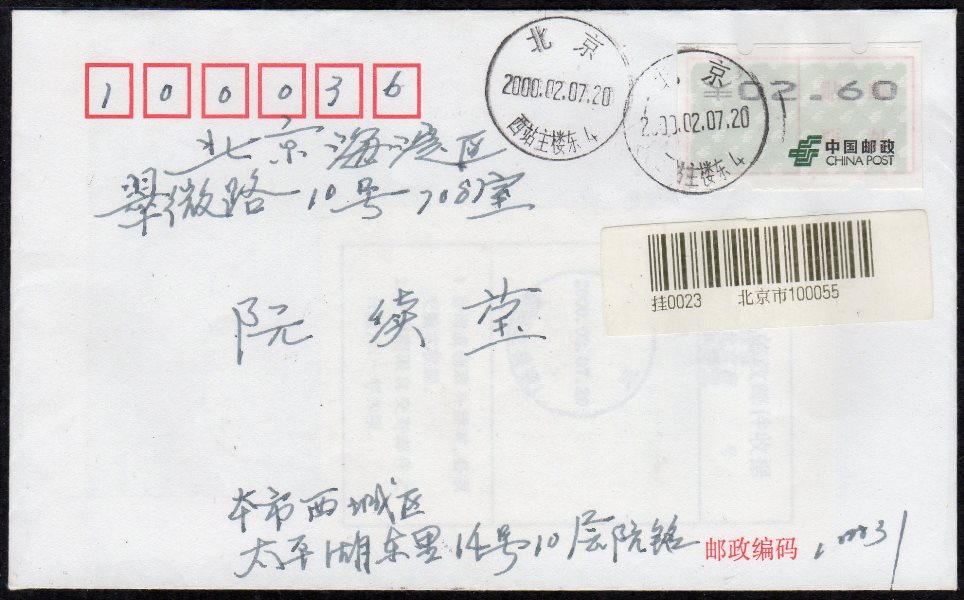 1 0 0 0 3 6
北京
2000.02.07.20
西站主楼东4
北京
2000.02.07.20
站主楼东4
¥02.60
中国邮政
CHINA POST
北京海淀区
翠微路10号708室
挂0023 北京市100055
阮 续 堂
本市西城区
太平湖东里14号10层 阮铭
邮政编码